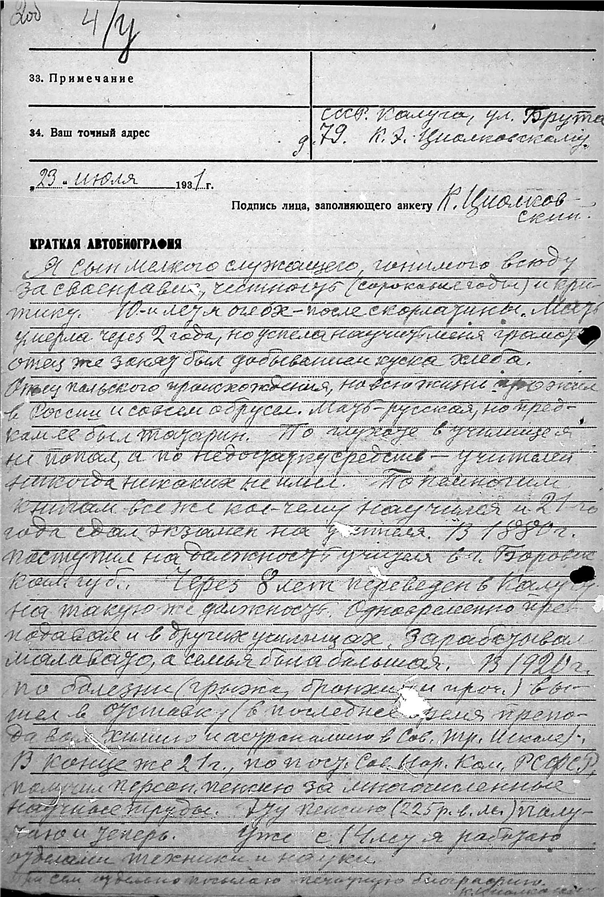 4/у
33. Примечание
СССР. Калуга, ул. Брута
34. Ваш точный адрес д. 79. К. Э. Циолковскому.
„23" июля 1931 г.
Подпись лица, заполняющего анкету К. Циолков-
ский.
КРАТКАЯ АВТОБИОГРАФИЯ
Я сын мелкого служащего, гонимого всюду
за своенравие, честность (сороковые годы) и кри-
тику. 10-и лет я оглох - после скарлатины. Мать
умерла через 2 года, но успела научить меня грамоте
отец же занят был добыванием куска хлеба.
Отец польского происхождения, но всю жизнь прожил
в России и совсем обрусел. Мать - русская, но пред-
ком ее был татарин. По глухоте в училище я
не попал, а по недостатку средств - учителей
никогда никаких не имел. По немногим
книгам все же кое-чему научился и 21-го
года сдал экзамен на учителя. В 1880 г.
поступил на должность учителя в г. Боровск
Калуж. губ. Через 8 лет переведен в Калугу
на такую же должность. Одновременно пре-
подавал и в других училищах. Зарабатывал
маловато, а семья была большая. В 1920 г.
по болезни (грыжа, бронхит и проч.) вы-
шел в отставку (в последнее время препо-
давал химию и астрономию в Сов. тр. школе).
В конце же 21 г., по пост. Сов. Нар. Ком. РСФСР,
получил персон. пенсию за многочисленные
научные труды. Эту пенсию (225 р. в м.) полу-
чаю и теперь. Уже с 14 лет я работаю
отделами техники и науки
При сем отдельно посылаю печатную биографию.
К. Циолковский